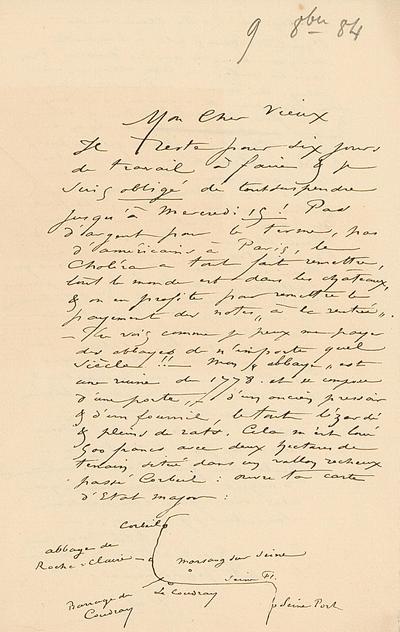 9 8bre 84
Mon Cher Vieux
Il reste pour six jours
de travail à faire & je
suis obligé de tout suspendre
jusqu'à Mercredi 15! Pas
d'argent pour le terme, pas
d'américains à Paris, le
Choléra a tout fait remettre,
tout le monde est dans les chateaux,
& on en profite pour remettre le
payement des notes "à la rentrée".
— Tu vois comme je peux me payer
des abbayes de n'importe quel
siècle!!! Mon "abbaye" est
une ruine de 1778. et se compose
d'une porte, d'un ancien pressoir
& d'un fournil, le tout lézardé
& pleins de rats. Cela m'est loué
500 francs avec deux hectares de
terrain situé dans un vallon rocheux
passé Corbeil: ouvre ta carte
d'Etat major:
Corbeil
abbaye de
Roche-Claire
morsang sur Seine
Seine Fl.
Barrage du
Coudray
Le Coudray
Seine Port